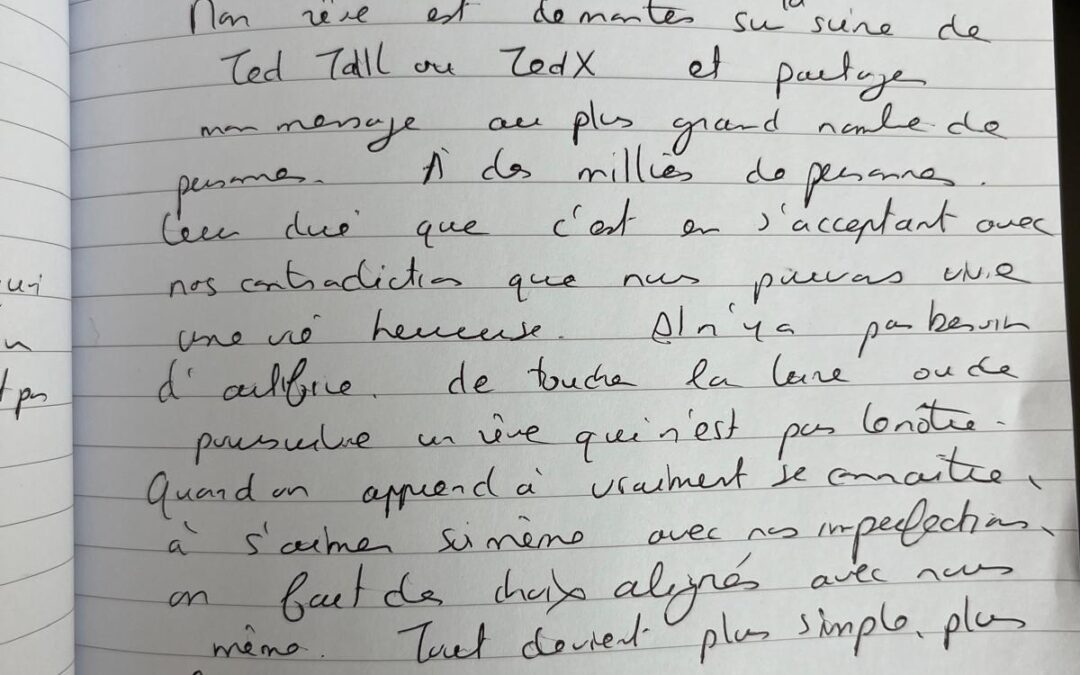 Mon rêve est de monter sur la scène de
Ted Talk ou TedX et partager
mon message au plus grand nombre de
personnes. A des milliers de personnes.
Leur dire que c'est en s'acceptant avec
nos contradictions que nous pouvons vivre
une vie heureuse. Il n'y a pas besoin
d'artifice. de toucher la lune ou de
poursuivre un rêve qui n'est pas le nôtre.
Quand on apprend à vraiment se connaître,
à s'aimer soi même avec nos imperfections,
on fait des choix alignés avec nous
même. Tout devient plus simple, plus